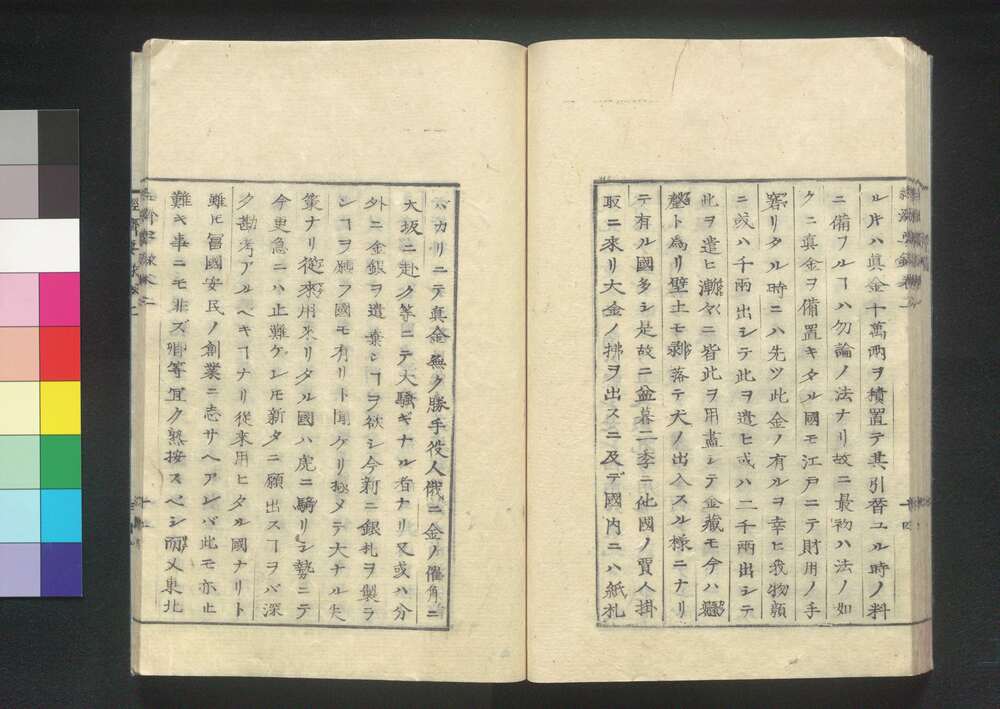 ル片ハ真金十萬兩ヲ積置テ其引替ユル時ノ料
ニ備フルヿハ勿論ノ法ナリ故ニ最初ハ法ノ如
クニ真金ヲ備置キタル國モ江戸ニテ財用ノ手
窘リタル時ニハ先ツ此金ノ有ルヲ幸ヒ我物顔
ニ或ハ千兩出シテ此ヲ遣ヒ或ハ二千兩出シテ
此ヲ遣ヒ漸々ニ皆此ヲ用盡シテ金藏モ今ハ
ト為リ壁土モ剥落テ犬ノ出入スル様ニナリ
テ有ル國多シ是故ニ盆暮二季ニ他國ノ賈人掛
取ニ來リ大金ノ拂ヲ出スニ及デ國内ニハ紙札
バカリニテ真金無ク勝手役人俄ニ金ノ催角ニ
大坂ニ赴ク等ニテ大騒ギナル者ナリ又或ハ分
外ニ金銀ヲ遣棄シヿヲ欲シ今新ニ銀札ヲ製ラ
ンヿヲ願フ國モ有リト聞ケリ極メテ大ナル失
策ナリ從來用來リタル國ハ虎ニ騎リシ勢ニテ
今更急ニハ止難ケレモ新タニ願出スヿヲバ深
ク勘考アルベキヿナリ從來用ヒタル國ナリト
雖ヒ冨國安民ノ創業ニ志サヘアレバ此モ亦止
難キ事ニモ非ズ卿等冝ク熟按スベシ而乂東北